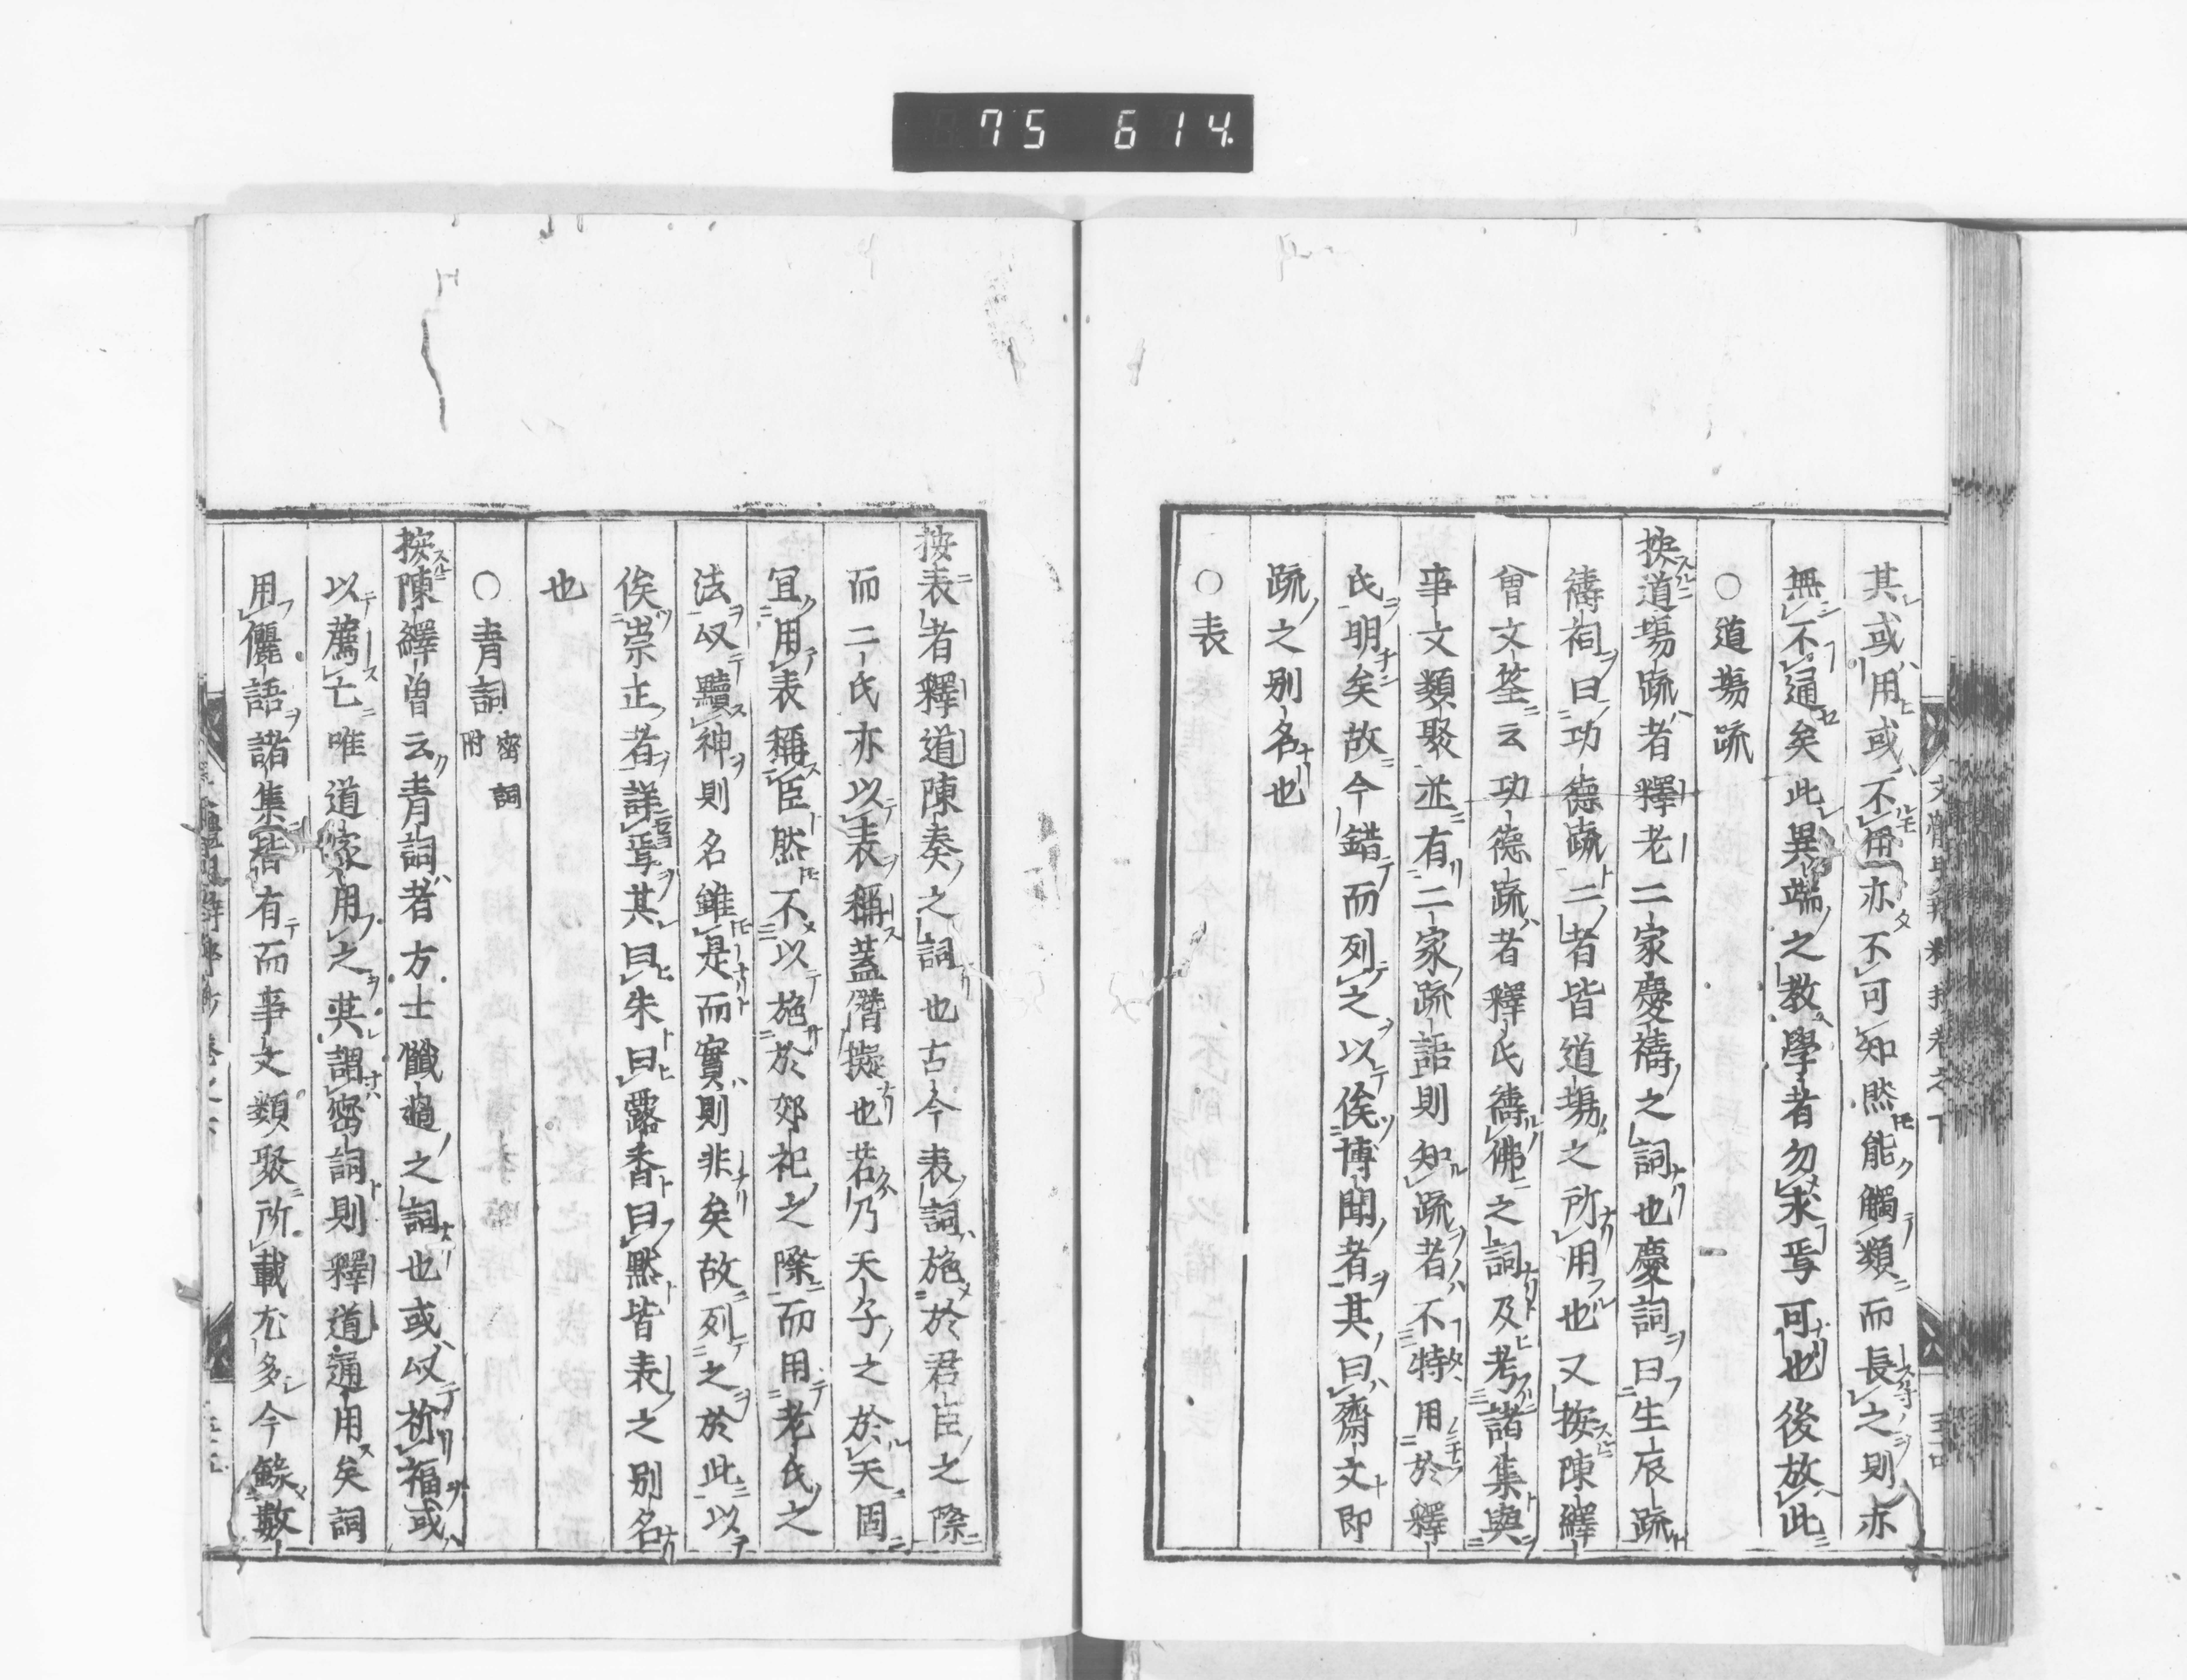 75 614
其或用或不用亦不可知然能觸類而長之則亦
無不通矣此異端之教學者勿求焉可也後放此
○道塲疏
按道塲疏者釋老二家慶禱之詞也慶詞曰生辰疏
禱祠曰功德疏二者皆道塲之所用也又按陳繹
曾文筌云功德疏者釋氏禱佛之詞及考諸集與
事文類聚並有二家疏語則知疏者不特用於釋
氏明矣故今錯而列之以俟博聞者其曰齋文即
疏之別名也
○表
按表者釋道陳奏之詞也古今表詞施於君臣之際
而二氏亦以表稱蓋僭擬也若乃天子之於天固
宜用表稱臣然不以施於郊祀之際而用老氏之
法以黷神則名雖是而實則非矣故列之於此以
俟崇正者詳焉其曰朱曰露香曰黙皆表之別名
也
○青詞 密詞附
按陳繹曾云青詞者方士懺過之詞也或以祈福或
以薦亡唯道家用之其謂密詞則釋道通用矣詞
用儷語諸集皆有而事文類聚所載尤多今錄數